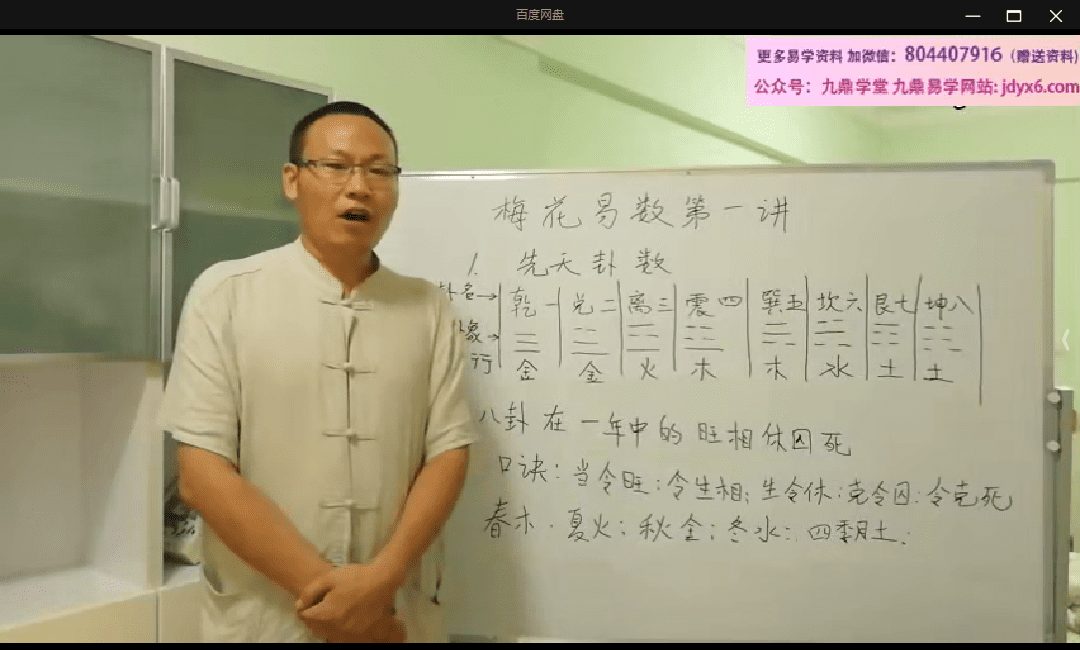 百度网盘
更多易学资料 加微信: 804407916 (赠送资料)
公众号: 九鼎学堂 九鼎易学网站: jdyx6.com
梅花易数第一讲
1. 先天卦数
卦名→ 乾一 兑二 离三 震四 巽五 坎六 艮七 坤八
象→ ☰ ☱ ☲ ☳ ☴ ☵ ☶ ☷
行 金 金 火 木 木 水 土 土
八卦在一年中的旺相休囚死
口诀:当令旺;令生相;生令休;克令囚;令克死
春木.夏火;秋金;冬水;四季月土;